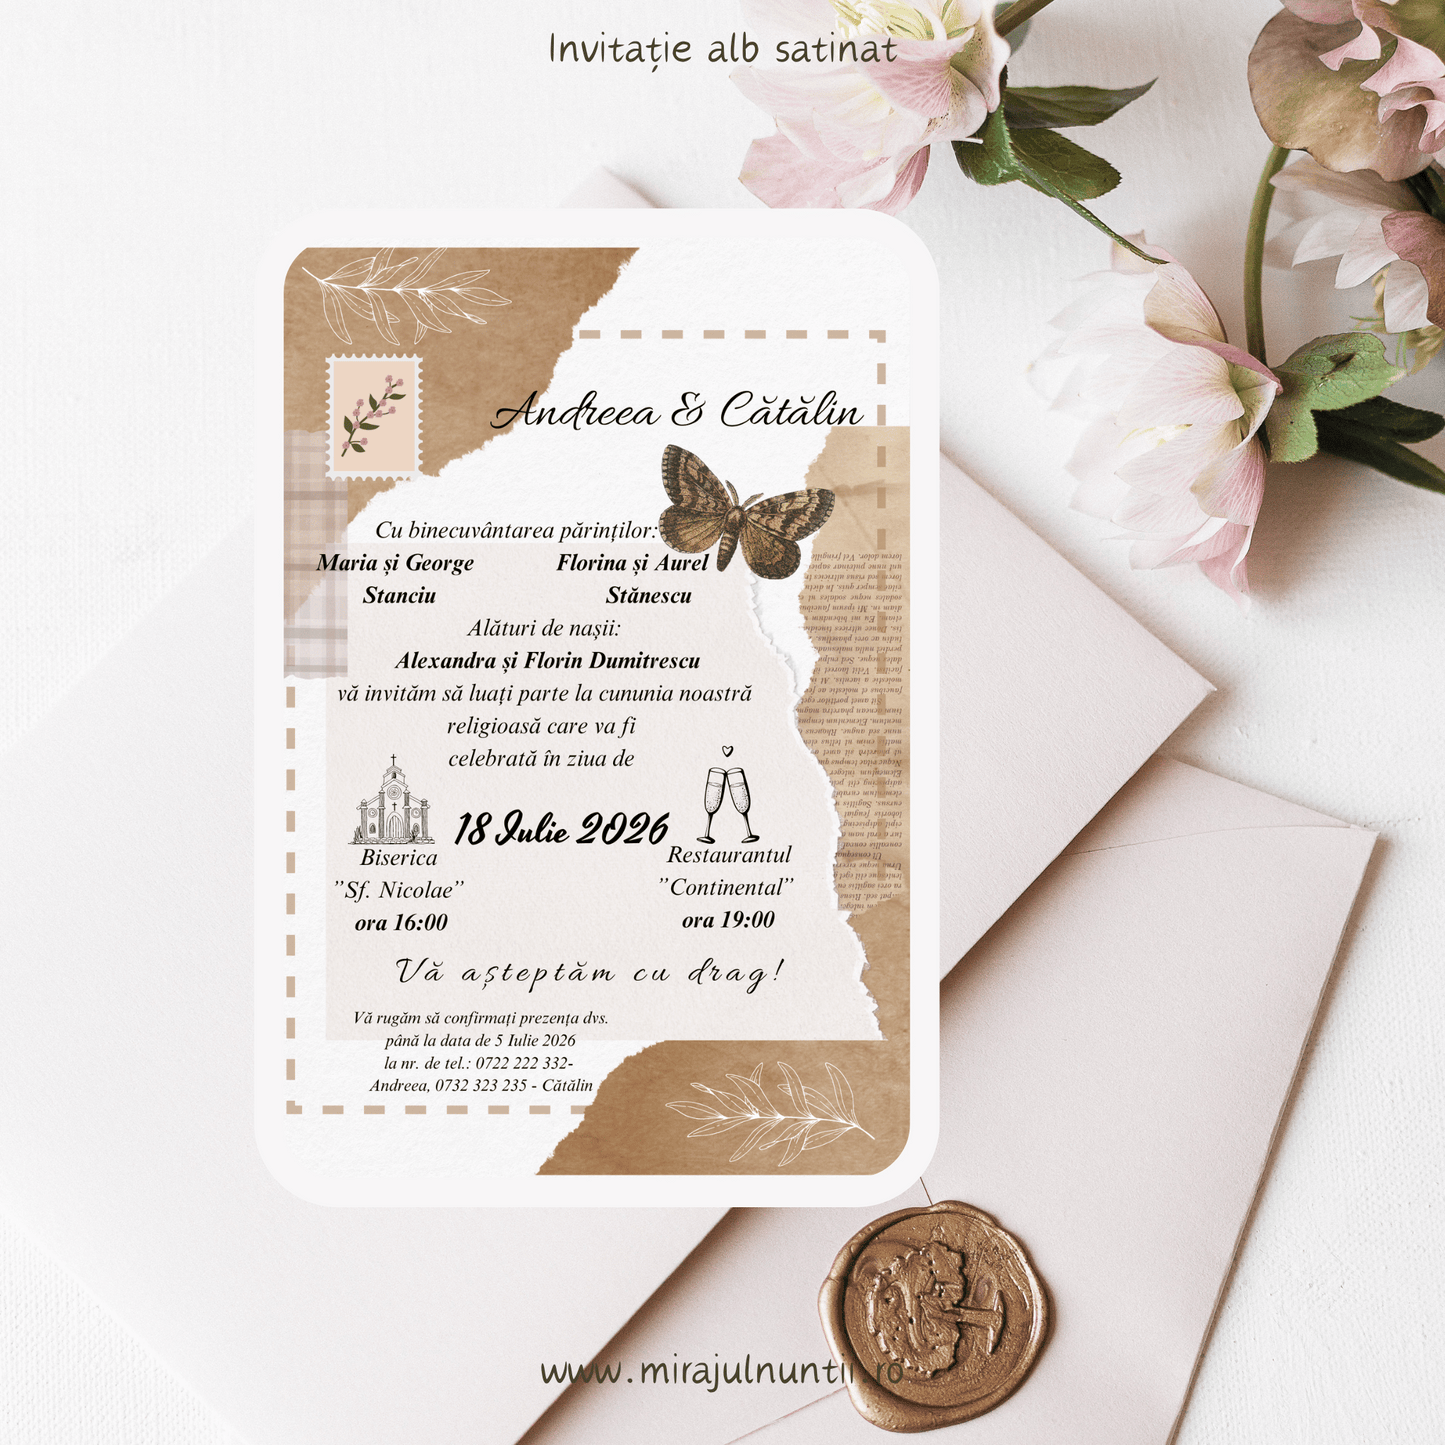 Invitație alb satinat
Andreea & Cătălin
Cu binecuvântarea părinților:
Maria și George Stanciu
Florina și Aurel Stănescu
Alături de nașii:
Alexandra și Florin Dumitrescu
vă invităm să luați parte la cununia noastră
religioasă care va fi
celebrată în ziua de
18 Iulie 2026
Biserica
”Sf. Nicolae”
ora 16:00
Restaurantul
”Continental”
ora 19:00
Vă așteptăm cu drag!
Vă rugăm să confirmați prezența dvs.
până la data de 5 Iulie 2026
la nr. de tel.: 0722 222 332-
Andreea, 0732 323 235 - Cătălin
www.mirajulnuntii.ro